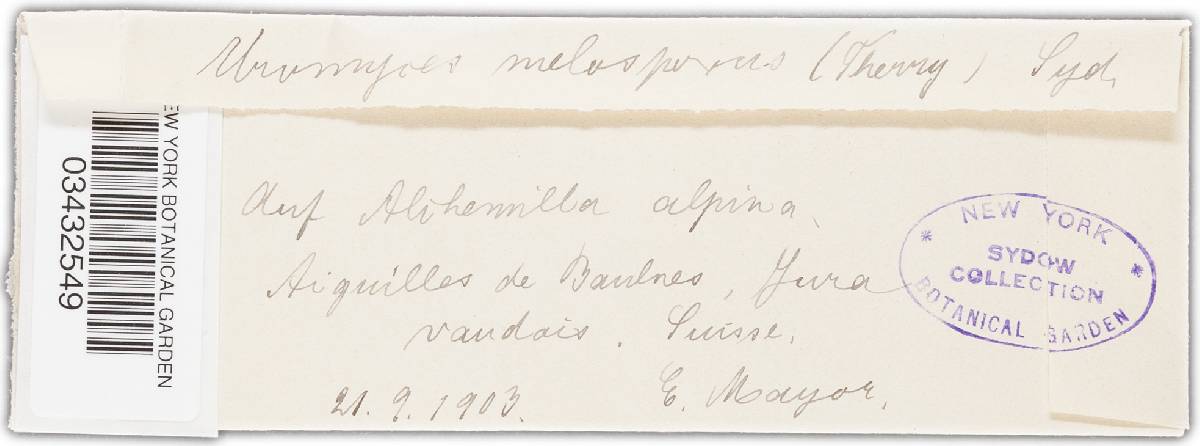 Uromyces melosporus (Therry) Syd.
Auf Alchemilla alpina.
Aiguilles de Baulnes, Jura
vaudois. Suisse.
21. 9. 1903. E. Mayor.
EW YORK BOTANICAL GARDEN
03432549
* NEW YORK *
SYDOW
COLLECTION
BOTANICAL GARDEN